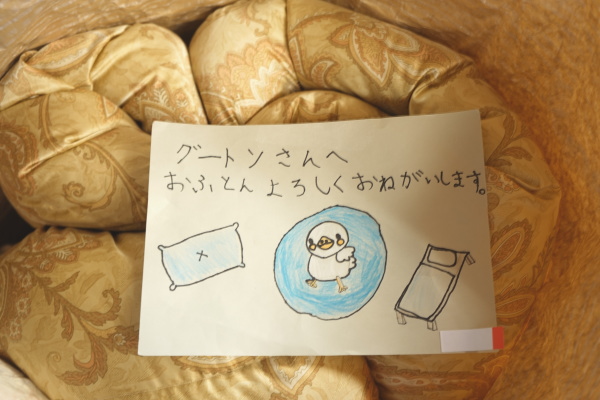 グートンさんへ
おふとんよろしくおねがいします。